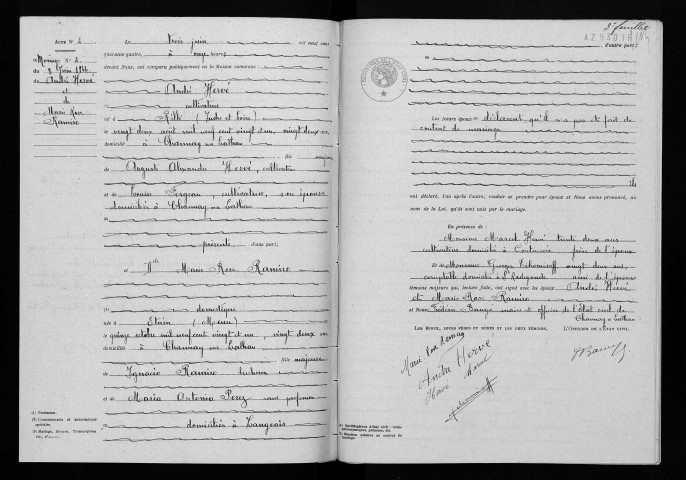 ACTE N° 2
Mariage N° 2
du 3 Juin 1944
de André Hervé
et
de
Marie Rose
Ramiro
Le trois juin mil neuf cent
quarante quatre, à onze heures
devant Nous, ont comparu publiquement en la Maison commune :
André Hervé
cultivateur
né à Rillé (Indre et Loire)
le vingt deux août mil neuf cent vingt et un, vingt deux ans
domicilié à Channay sur Lathan
fils majeur
de Auguste Alexandre Hervé, cultivateur
et de Louise Fergeau, cultivatrice, son épouse
domiciliés à Channay sur Lathan
présents d'une part;
et Mlle Marie Rose Ramiro
domestique
née à Etain (Meuse)
le quinze octobre mil neuf cent vingt et un, vingt deux ans
domiciliée à Channay sur Lathan
fille majeure
de Ignacio Ramiro
et de Maria Antonia Perez sans profession
domiciliés à Langeais
(1) Profession.
(3) Mariage, Divorce, Transcription
3e feuillet
AZ93016
d'autre part;
Les futurs époux déclarent qu'il n'a pas été fait de
contrat de mariage
ils
ont déclaré, l'un après l'autre, vouloir se prendre pour époux et Nous avons prononcé, au
nom de la Loi, qu'ils sont unis par le mariage.
En présence de :
Monsieur Marcel Hervé trente deux ans
cultivateur domicilié à Continvoir frère de l'époux
Et de Monsieur Georges vingt deux ans,
comptable domicilié à St Radegonde ami de l'épouse
témoins majeurs qui, lecture faite, ont signé avec les époux André Hervé
et Marie Rose Ramiro
et Nous Frédéric Bauge maire et officier de l'état civil de
Channay sur Lathan.
LES ÉPOUX, LEURS PÈRES ET MÈRES ET LES DEUX TÉMOINS, L'OFFICIER DE L'ÉTAT CIVIL
Marie Rose Ramiro
André Hervé
Hervé Marcel